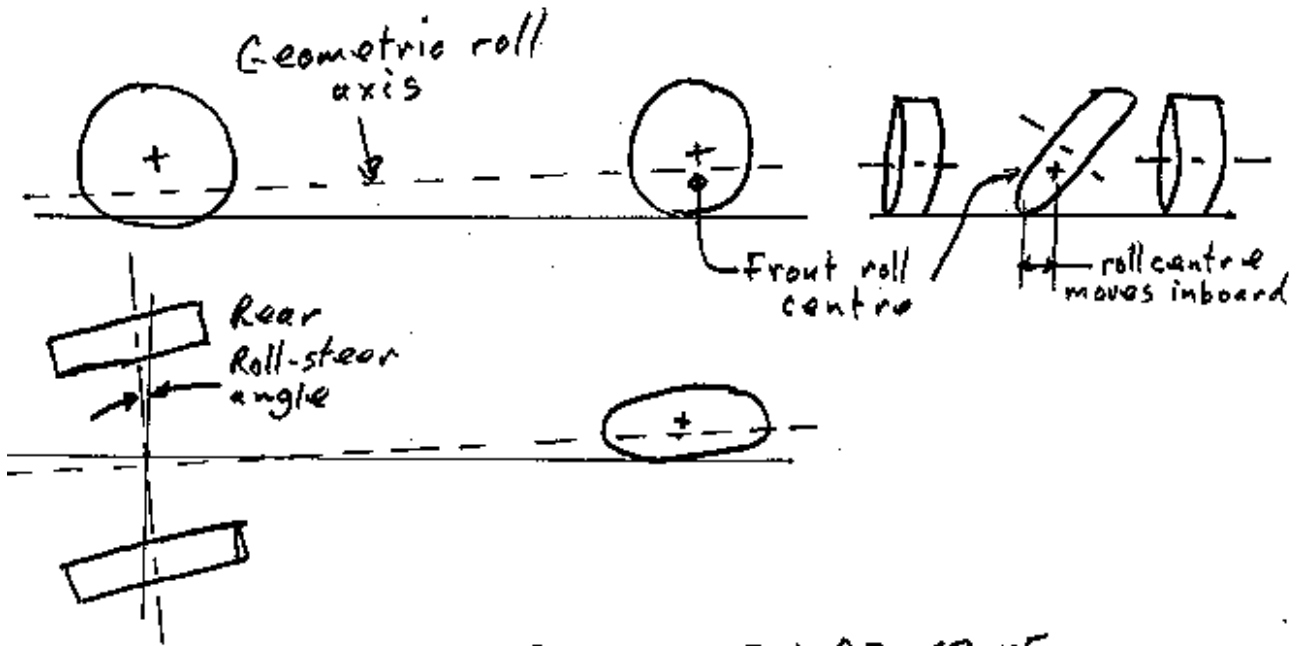 Geometric roll
axis
Front roll
centre
roll centre
moves inboard
Rear
Roll-steer
angle